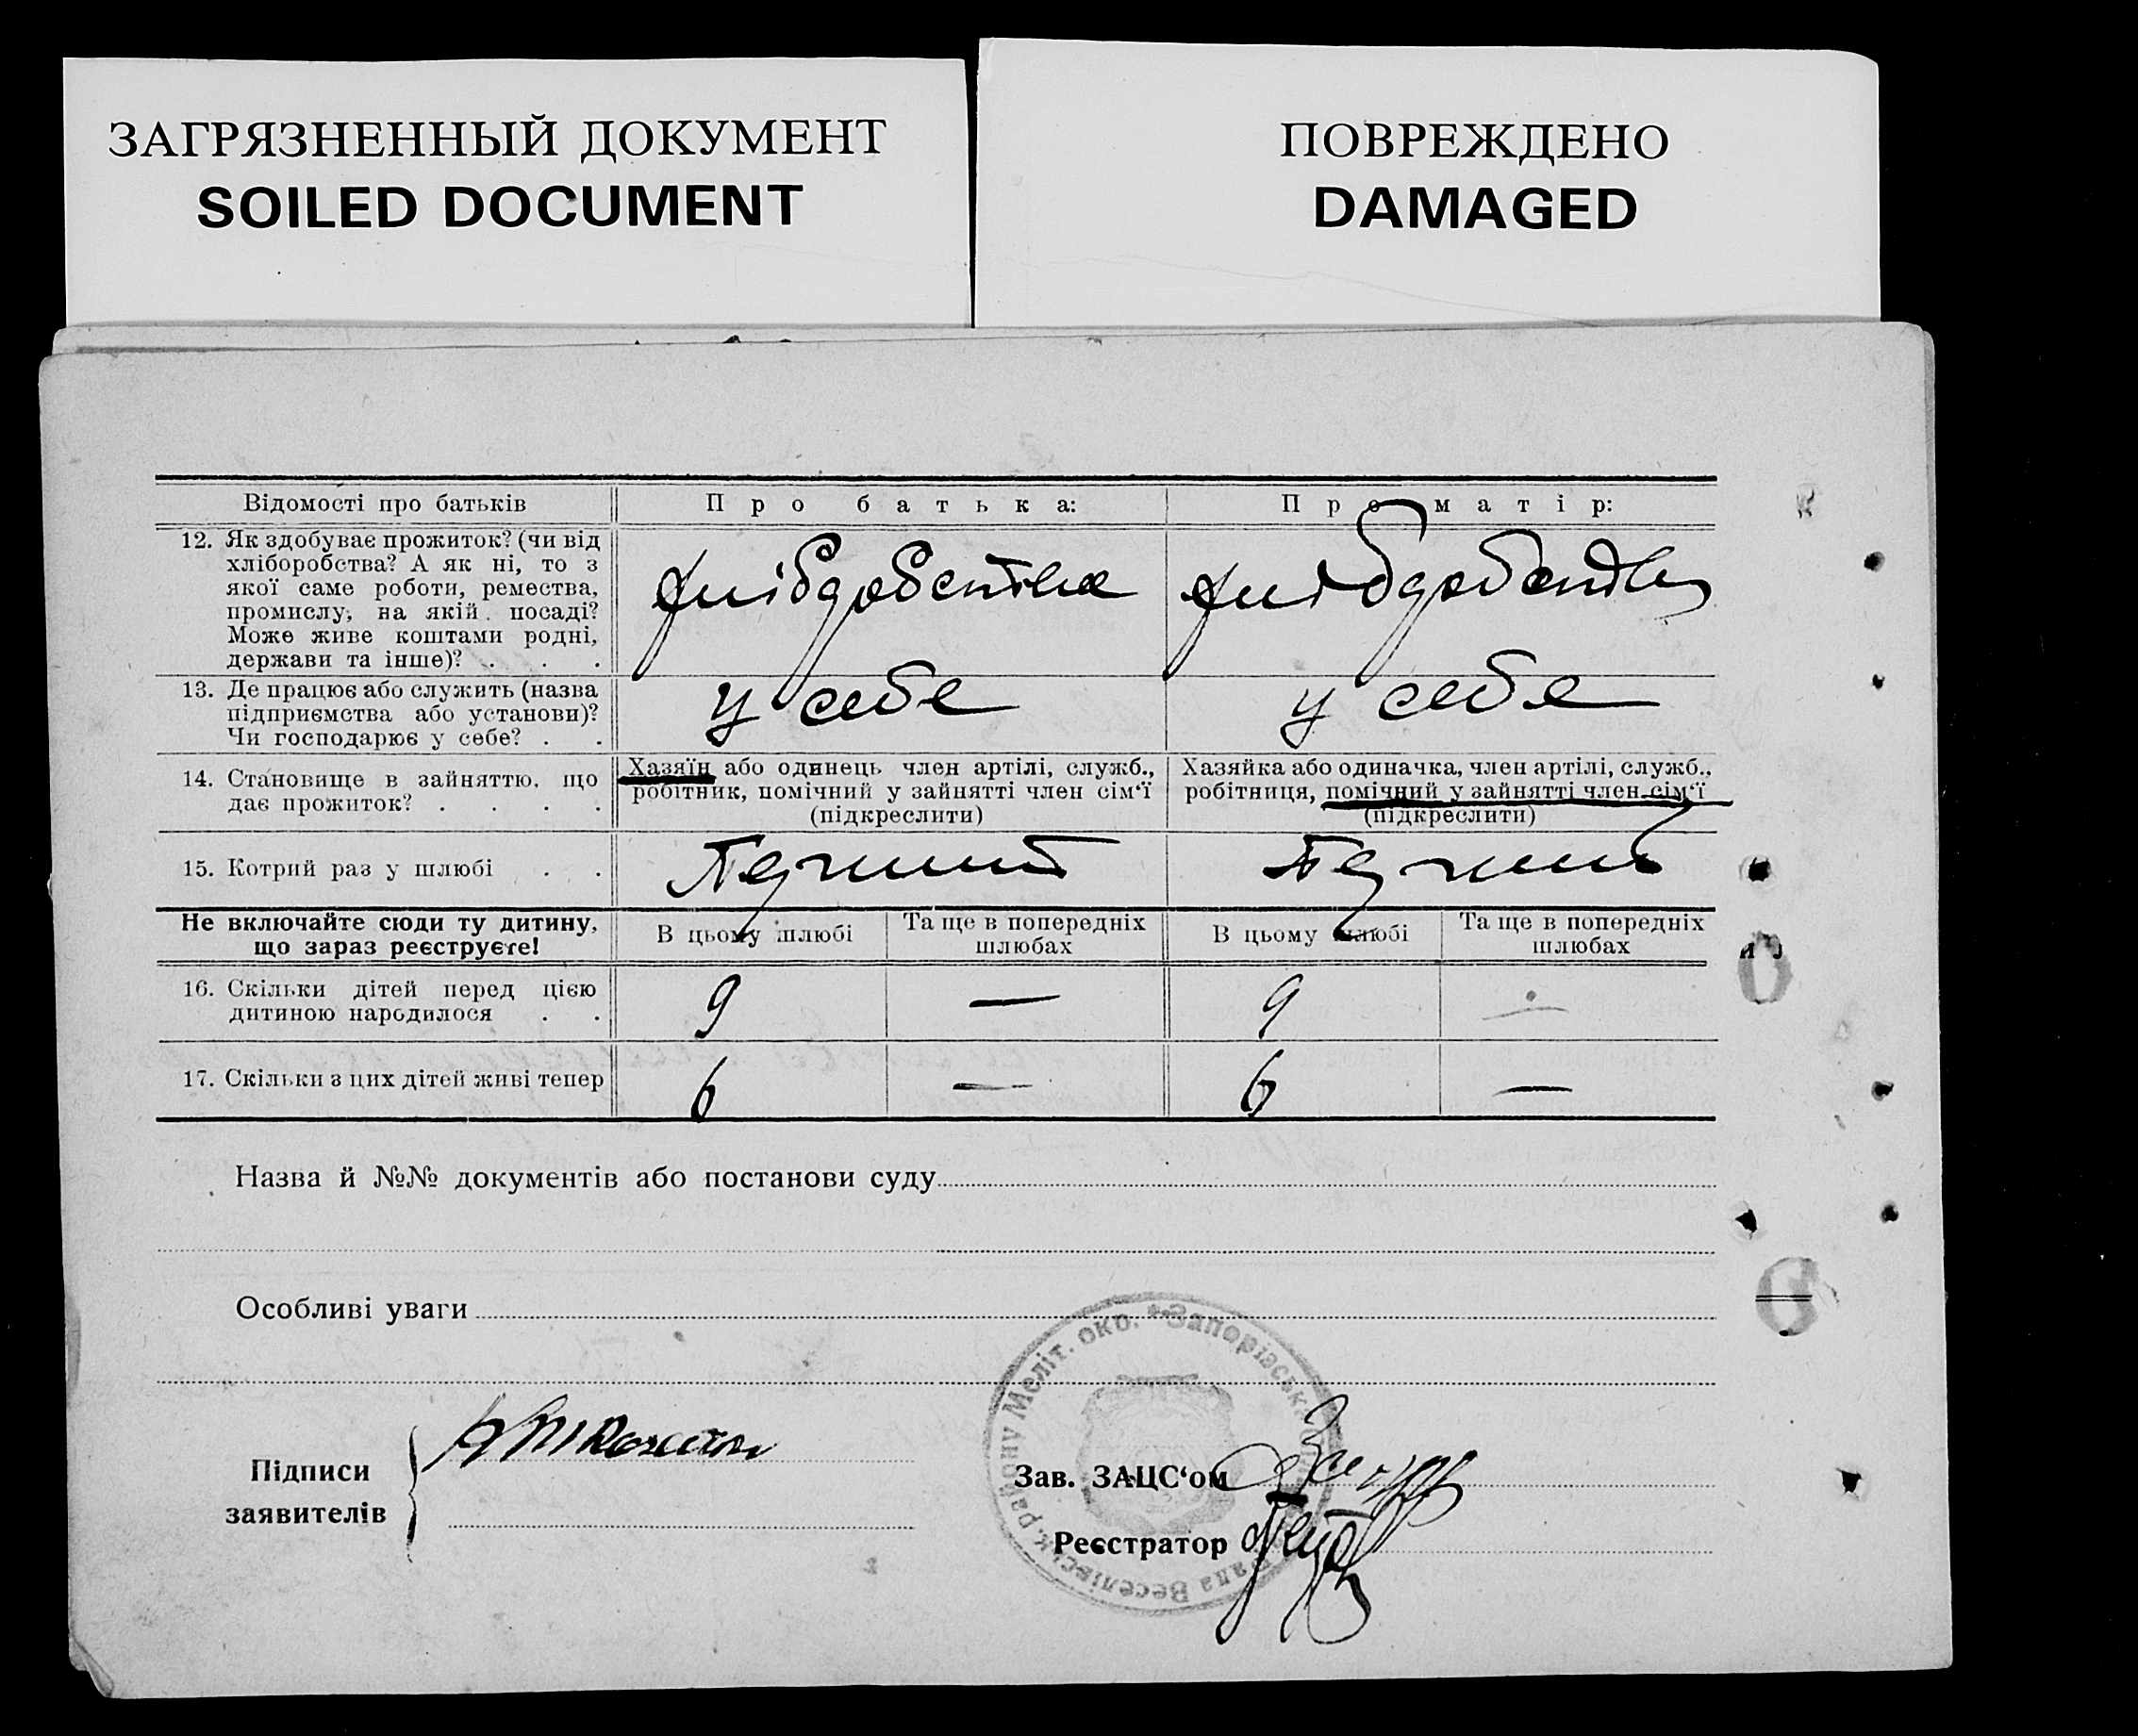 ЗАГРЯЗНЕННЫЙ ДОКУМЕНТ
SOILED DOCUMENT
ПОВРЕЖДЕНО
DAMAGED
Відомості про батьків
Про батька:
Про матір:
12. Як здобуває прожиток? (чи від
хліборобства? А як ні, то з
якої саме роботи, ремества,
промислу, на якій посаді?
Може живе коштами родні,
держави та інше)? . . .
13. Де працює або служить (назва
підприємства або установи)?
Чи господарює у себе? . .
у себе
у себе
14. Становище в зайняттю, що
дає прожиток? . . . .
Хазяїн або одинець член артілі, служб.,
робітник, помічний у зайнятті член сім‘ї
(підкреслити)
Хазяйка або одиначка, член артілі, служб.,
робітниця, помічний у зайнятті член сім‘ї
(підкреслити)
15. Котрий раз у шлюбі . .
Не включайте сюди ту дитину,
що зараз реєструєте!
В цьому шлюбі
Та ще в попередніх
шлюбах
В цьому шлюбі
Та ще в попередніх
шлюбах
16. Скільки дітей перед цією
дитиною народилося . .
9 — 9 —
17. Скільки з цих дітей живі тепер
6 — 6 —
Назва й №№ документів або постанови суду
Особливі уваги
Підписи
заявителів
Зав. ЗАЦС‘ом
Реєстратор
району Меліт. окр. * Запорізська
рада Веселівськ.